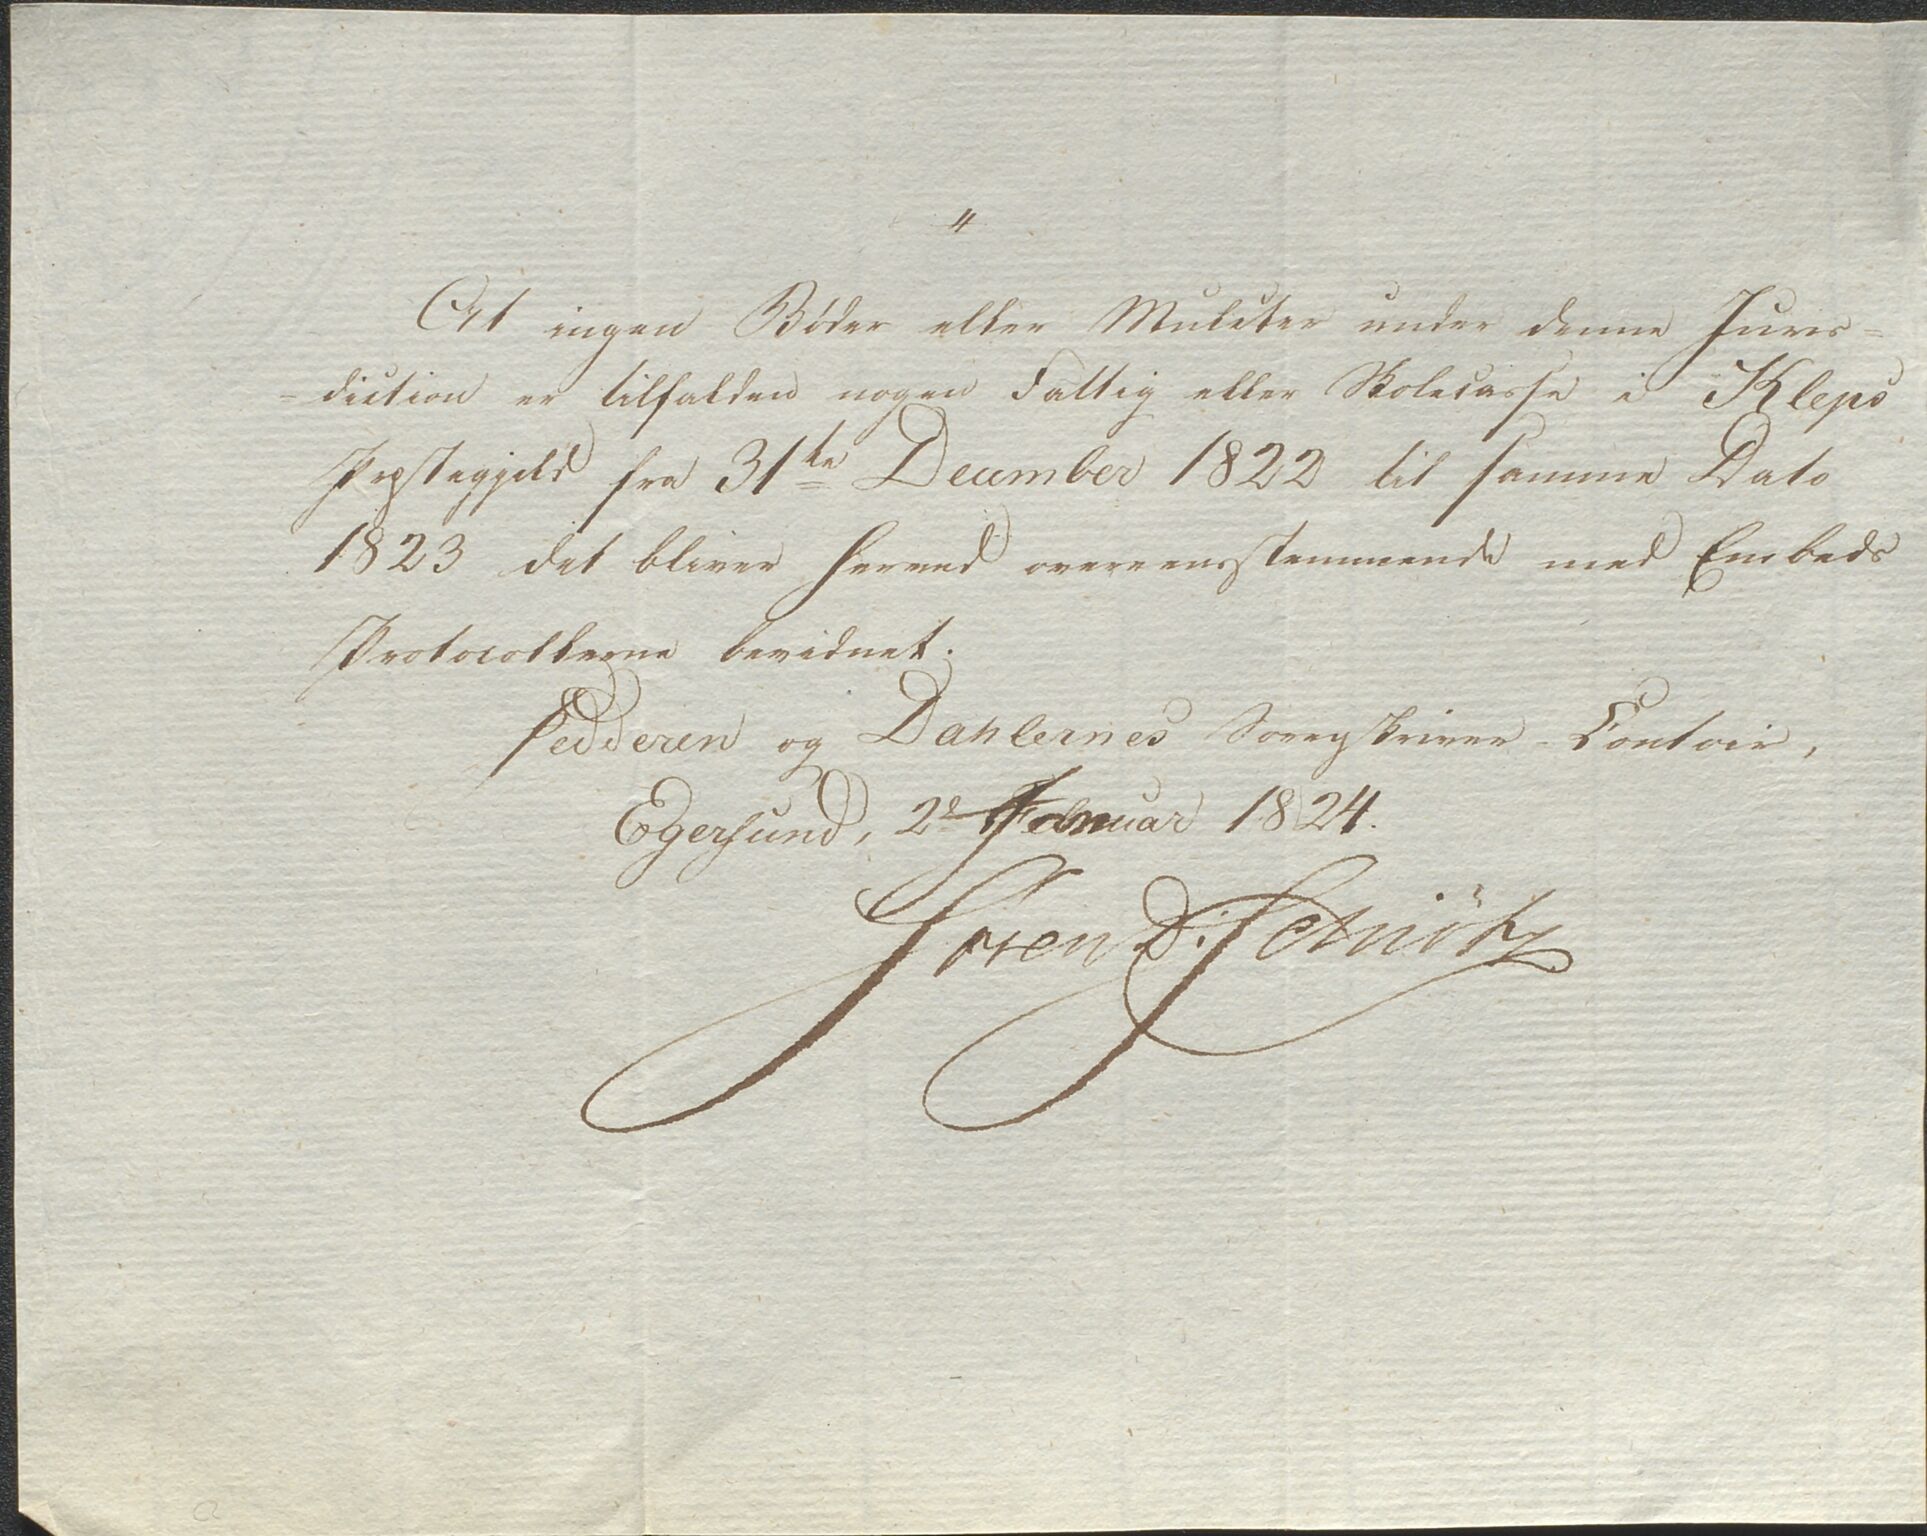 "
At ingen Bøder eller Mulcter under denne Juris=
=diction er tilfalden nogen Fattig eller Skolecasse i Kleps
Præstegjeld fra 31te December 1822 til samme Dato
1823 det bliver herved overeensstemmende med Embeds
Protocollerne bevidnet.
Jedderen og Dahlernes Sorenskriver-Contoir,
Egersund, 2d Februar 1824.
Søren D: Schiötz